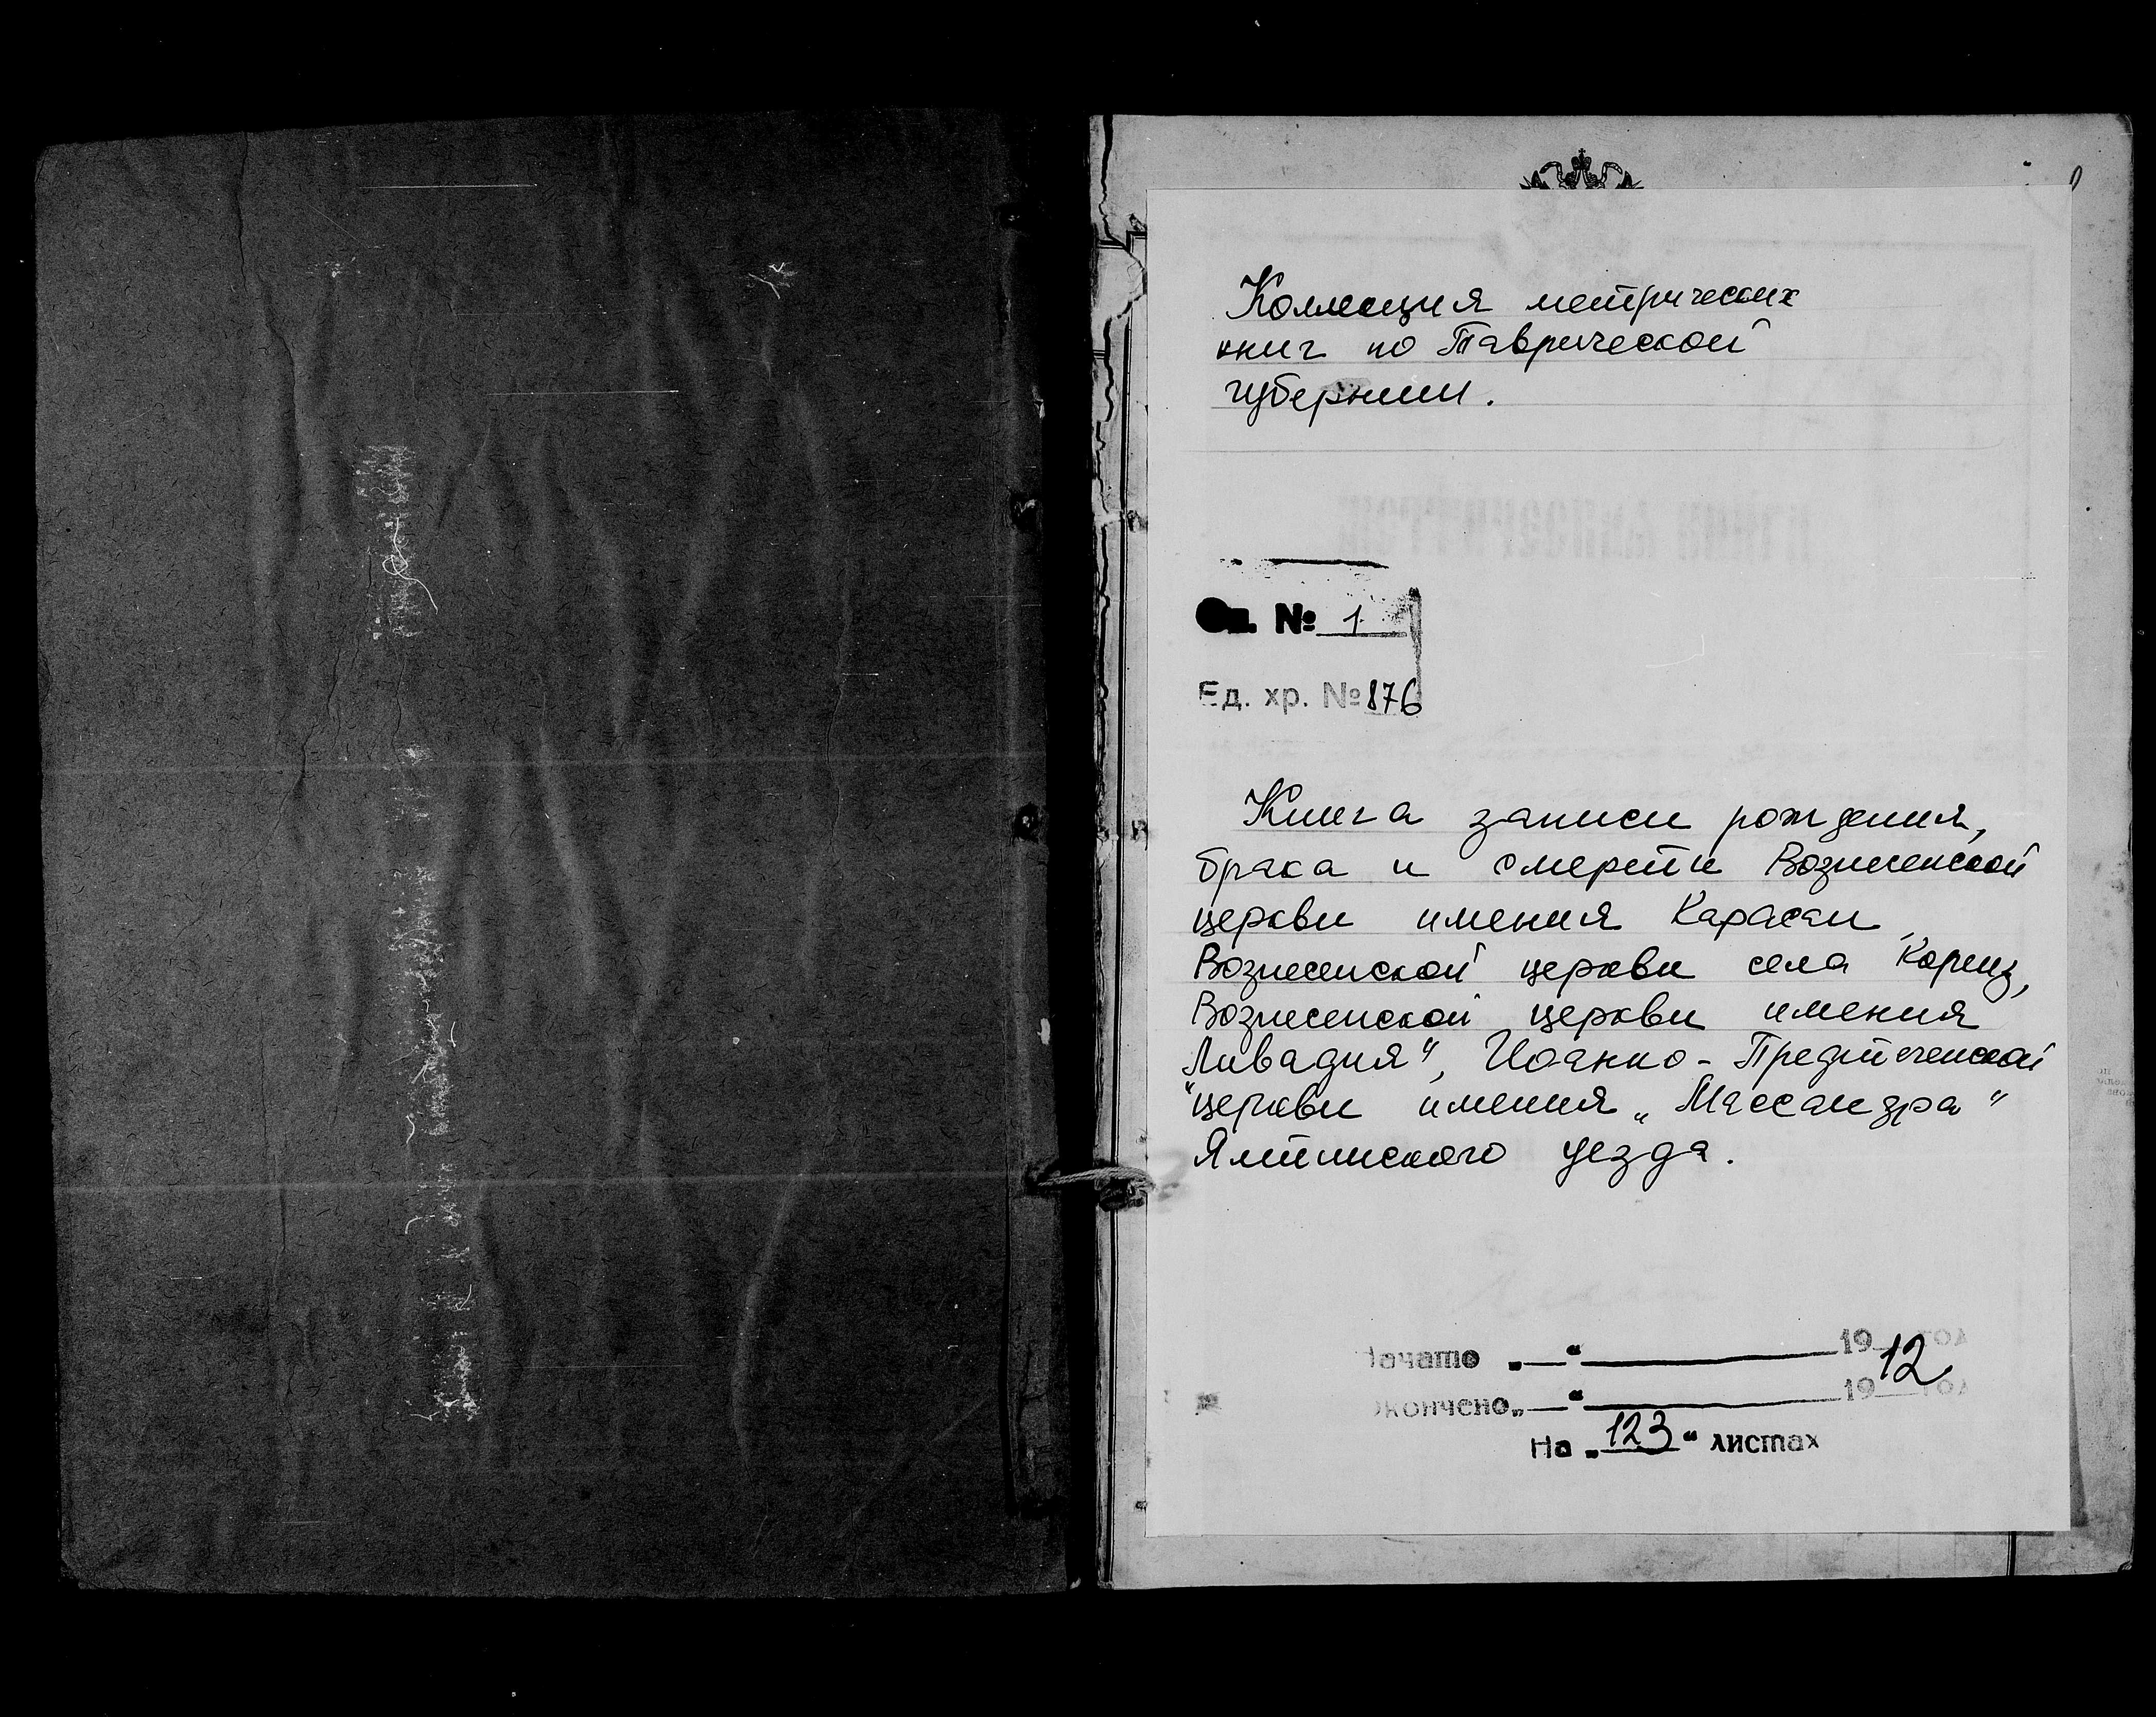 Коллекция метрических
книг по Таврической
губернии.
Оп. № 1
Ед. хр. № 876
Книга записи рождения,
брака и смерти Вознесенской
церкви имения Карасан,
Вознесенской церкви села Кореиз,
Вознесенской церкви имения
"Ливадия", Иоанно-Предтеченской
церкви имения „Массандра"
Ялтинского уезда.
Начато „—“ 19 год
12
Окончено „—“ 19 год
На „123“ листах